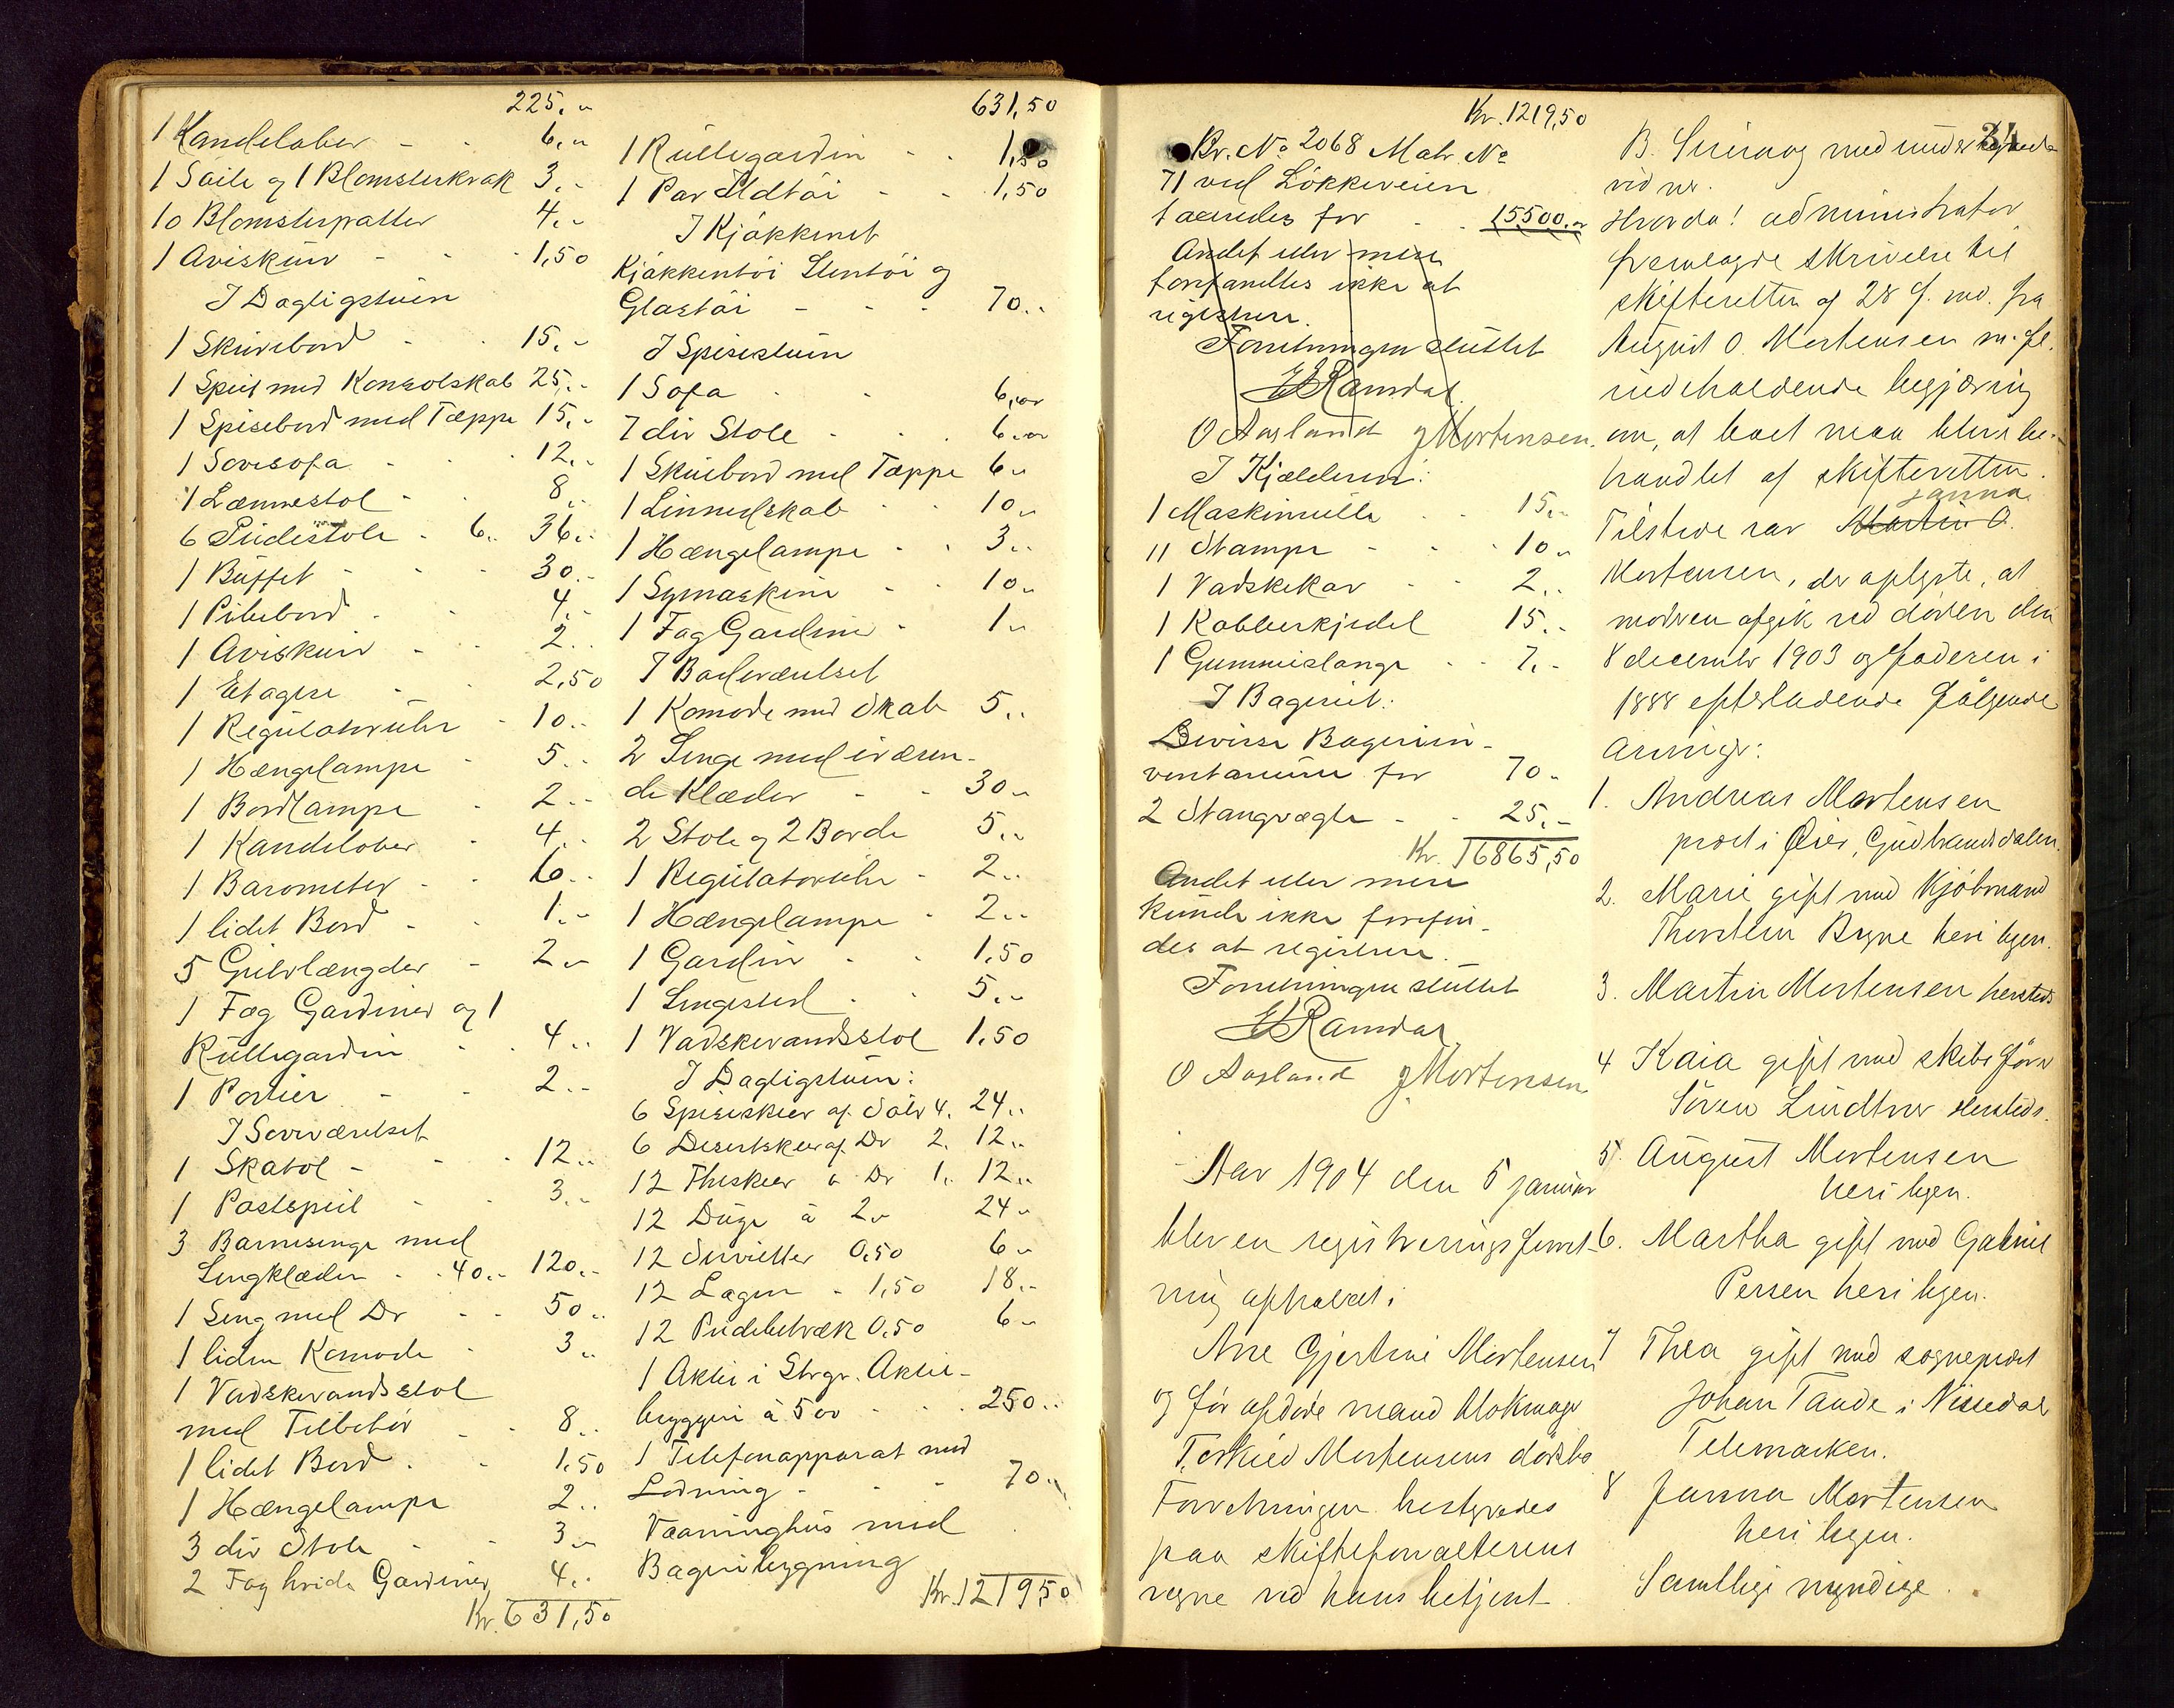 225,„
1 Kandelaber - - 6,„
1 Søile og 1 Blomsterkrak 3,„
10 Blomsterpotter 4,„
1 Aviskurv - - 1,50
I Dagligstuen
1 Skrivebord - 15,„
1 Speil med Konsolskab 25,„
1 Spisebord med Tæppe 15,„
1 Sovesofa - - 12,„
1 Lænnestol - 8,„
6 Pudestole - 6,„ 36,„
1 Buffet - - - 30,„
1 Pibebord - - 4,„
1 Aviskurv - - 2,„
1 Etagere - - 2,50
1 Regulatoruhr - 10,„
1 Hængelampe - 5,„
1 Bordlampe - 2,„
1 Kandelaber - 4,„
1 Barometer - - 6,„
1 lidet Bord - - 1,„
5 Gulvlængder - 2,„
1 Fag Gardiner og 1
Rullegardin - - 4,„
1 Portier - - 2,„
I Soveværelset
1 Skatol - - - 12,„
1 Postspeil - - 3,„
3 Barnesenge med
Sengklæder - - 40,„ 120,„
1 Seng med Do - - 50,„
1 liden Komode - 3,„
1 Vadskevandsstol
med Tilbehør - - 8,„
1 lidet Bord - - 1,50
1 Hængelampe 2,„
3 div Stole - - 3,„
2 Fag hvide Gardiner 4,„
Kr. 631,50
631,50
1 Rullegardin - - 1,50
1 Par Ildtøi - - 1,50
I Kjøkkenet
Kjøkkentøi Stentøi og
Glastøi - - - 70,„
I Spisestuen
1 Sofa - - 6,00
7 div Stole - - 6,00
1 Skuebord med Tæppe 6„
1 Linnedskab - - 10„
1 Hængelampe - - 3,„
1 Symaskine - 10„
1 Fag Gardiner - 1„
I Badeværelset
1 Komode med Skab 5,„
2 Senge med iværen-
de Klæder - - 30„
2 Stole og 2 Borde 5,„
1 Regulatoruhr - 2,„
1 Hængelampe - 2,„
1 Gardin - - 1,50
1 Sengested - - 5,„
1 Vadskevandsstol 1,50
I Dagligstuen:
6 Spiseskeer af Sølv 4, 24,„
6 Desertskeer af Do 2, 12,„
12 Theskeer a Do 1, 12,„
12 Duge à 2„ 24„
12 Servietter 0,50 6„
12 Lagen - 1,50 18,„
12 Pudebetræk 0,50 6„
1 Aktie i Stvgr. Aktie-
bryggeri à 500 - - 250,„
1 Telefonapparat med
Ledning - - - 70,„
Vaaninghus med
Bageribygning
Kr. 1219,50
Kr. 1219,50
Br. No 2068 Matr. No
71 ved Løkkeveien
taxeredes for - - 15500,„
Andet eller mere
forefandtes ikke at
registrere.
Forretningen sluttet
E Ramdal.
O Aasland J Mortensen.
I Kjælderen:
1 Maskinrulle - - 15,„
11 Stampe - - - 10„
1 Vadskekar - - 2,„
1 Kobberkjedel 15,„
1 Gummislange - - 7,„
I Bageriet:
Diverse Bageriin-
ventarium for 70„
2 Stangvægte - - 25,„
Kr. 16865,50
Andet eller mere
kunde ikke forefin-
des at registrere.
Forretningen sluttet
E Ramdal
O Aasland J Mortensen
Aar 1904 den 5 januar
blev en registreringsforret-
ning afholdt i
Ane Gjertine Mortensen
og før afdøde mand blokmager
Torkild Mortensens dødsbo
Forretningen bestyredes
paa skifteforvalterens
vegne ved hans betjent
34
B. Siqveland med undertegnede
vidner.
Hvorda! administrator
fremlagde skrivelse til
skifteretten af 28 f. md. fra
August O. Mortensen m. fl.
indeholdende begjæring
om, at boet maa blive be-
handlet af skifteretten.
Janna
Tilstede var Martin O.
Mortensen, der oplyste, at
moderen afgik ved døden den
8 december 1903 og faderen i
1888 efterladende følgende
arvinger:
1. Andreas Mortensen
prest i Øier, Gudbrandsdalen.
2. Marie gift med Kjøbmand
Thorstein Bryne heri byen.
3. Martin Mortensen hersteds
4 Kaia gift med skibsfører
Søren Lindtner hersteds.
5 August Mortensen
heri byen.
6. Martha gift med Gabriel
Persen heri byen.
7 Thea gift med sogneprest
Johan Tande i Nissedal
Telemarken.
8 Janna Mortensen
heri byen.
Samtlige myndige.